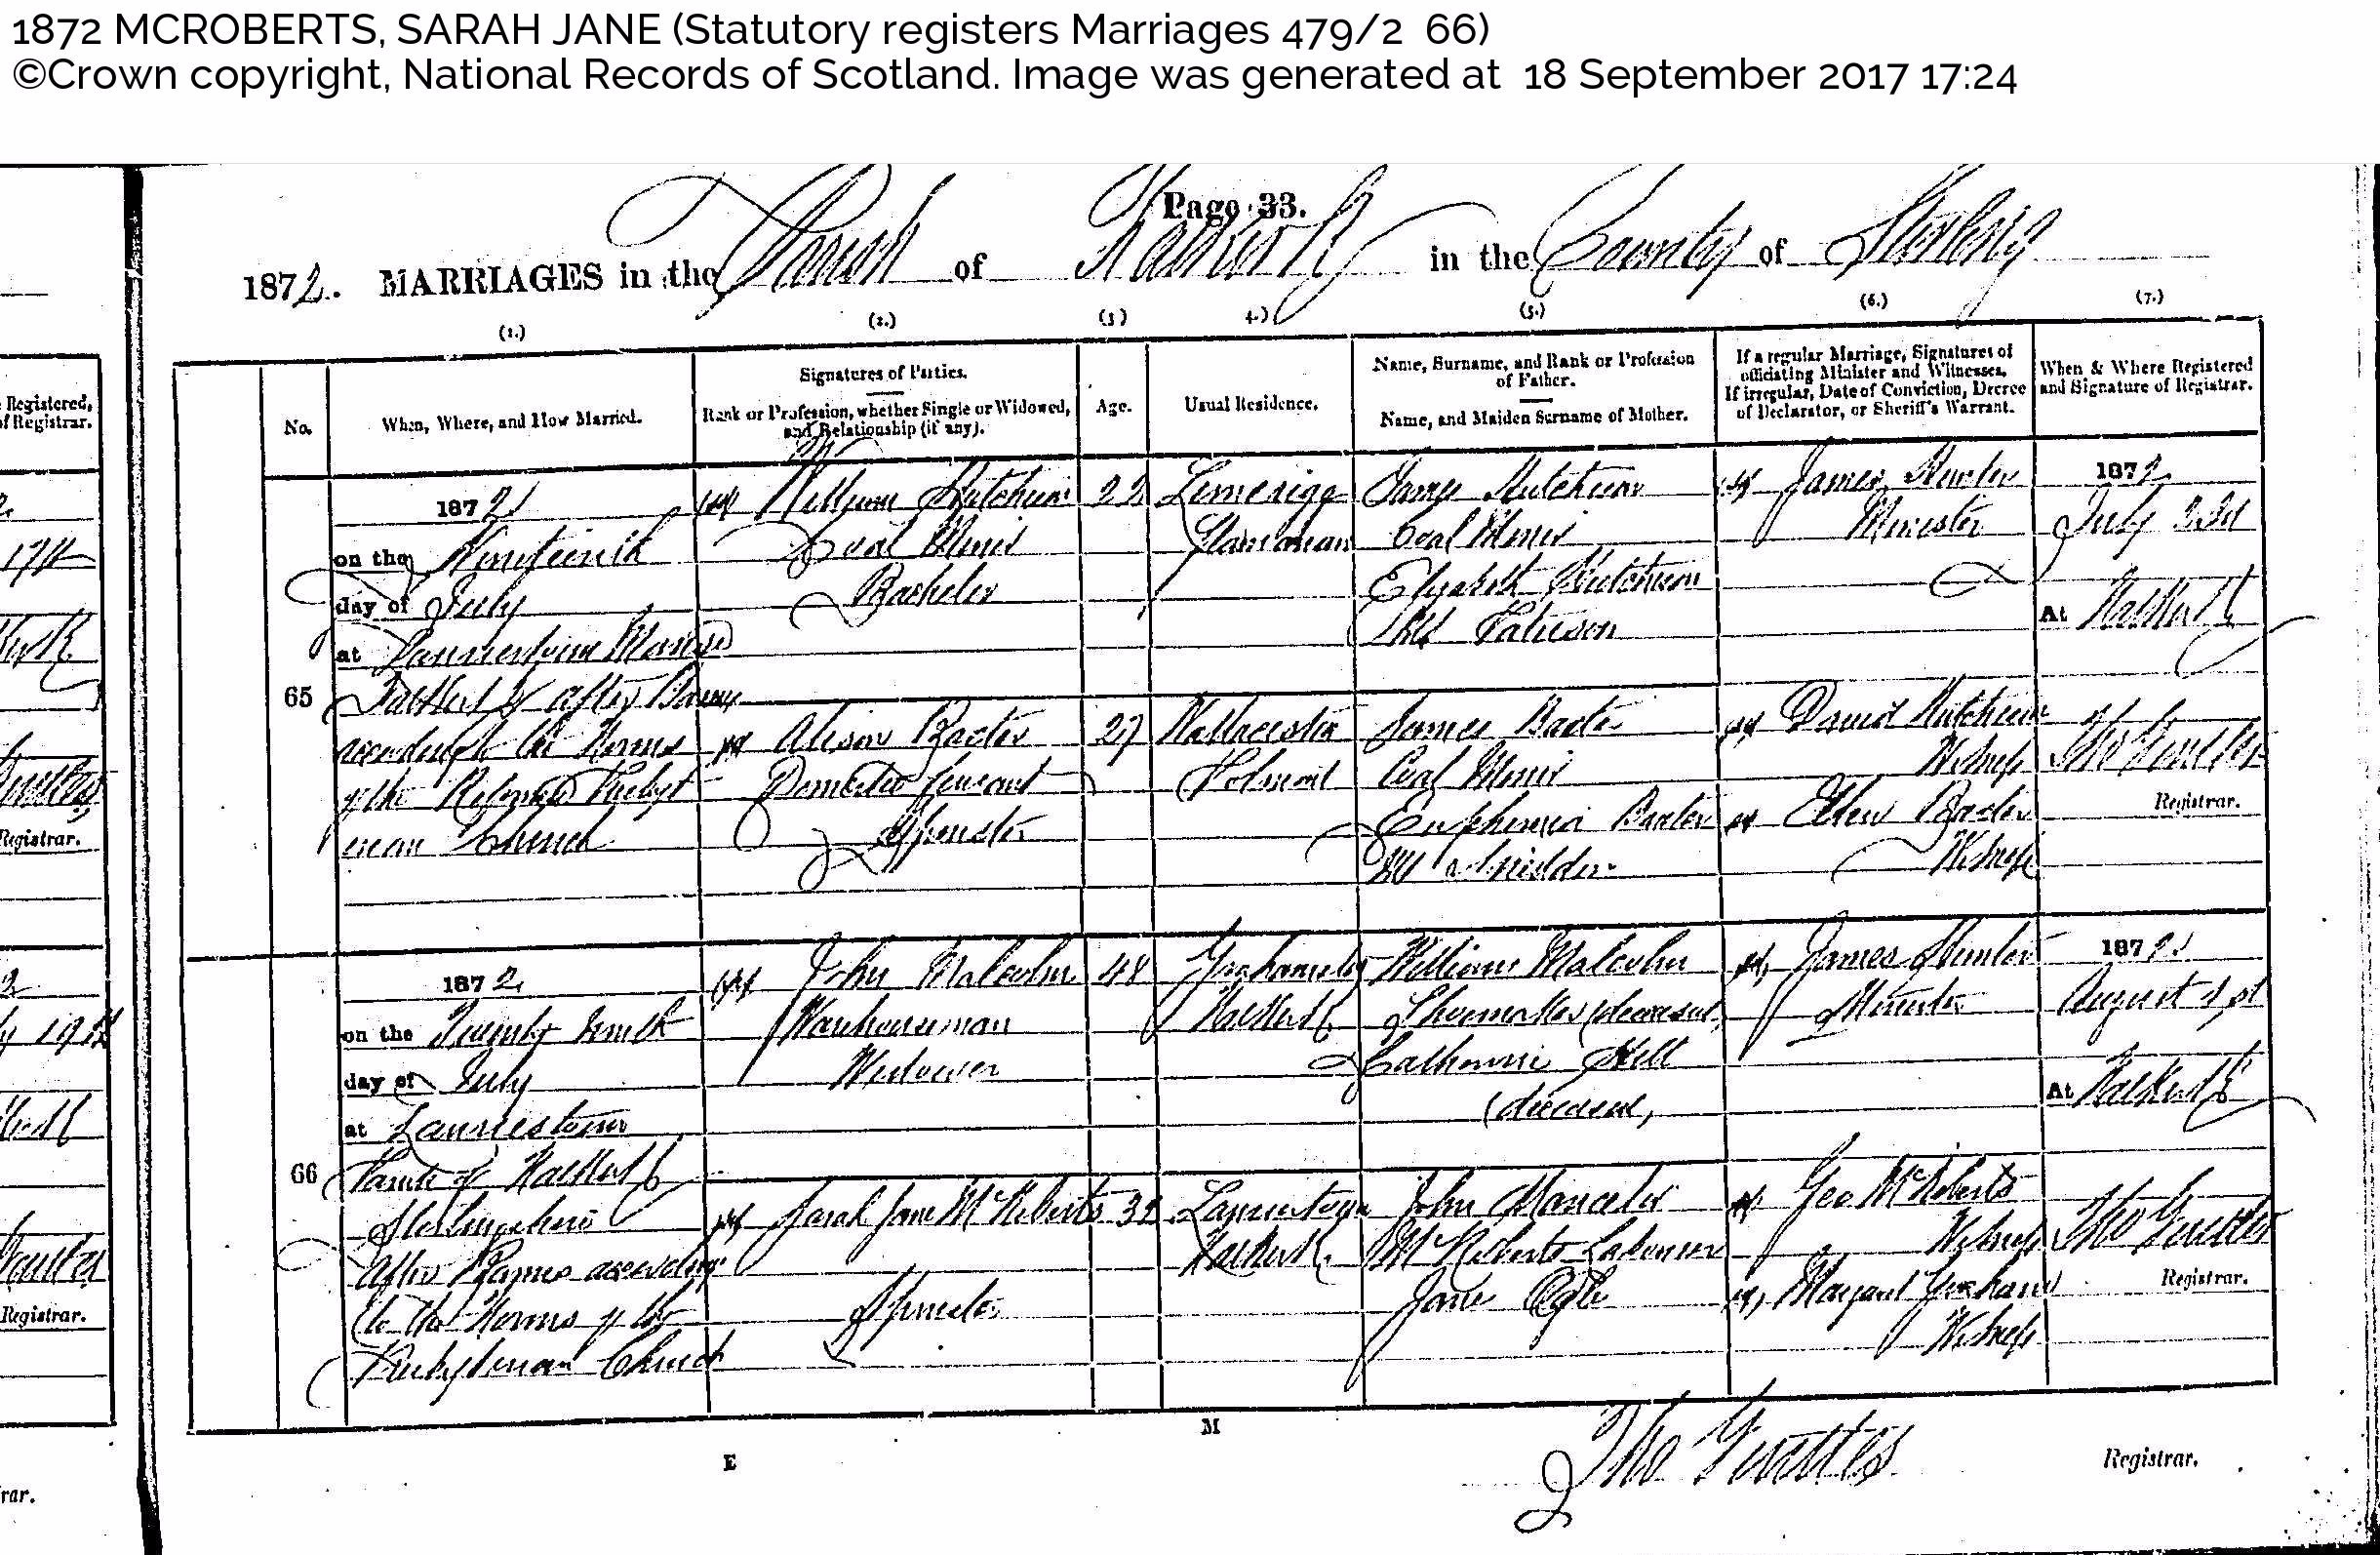 1872 MCROBERTS, SARAH JANE (Statutory registers Marriages 479/2 66)
©Crown copyright, National Records of Scotland. Image was generated at 18 September 2017 17:24
Page 33.
1872. MARRIAGES in the Parish of Falkirk in the County of Stirling
(1.) (2.) (3) 4.) (5.) (6.) (7.)
No.
When, Where, and How Married.
Signatures of Parties.
Rank or Profession, whether Single or Widowed,
and Relationship (if any).
Age.
Usual Residence.
Name, Surname, and Rank or Profession
of Father.
Name, and Maiden Surname of Mother.
If a regular Marriage, Signatures of
officiating Minister and Witnesses.
If irregular, Date of Conviction, Decree
of Declarator, or Sheriff's Warrant.
When & Where Registered
and Signature of Registrar.
65
1872
on the Nineteenth
day of July
at Laurieston Manse
Falkirk after Banns
according to the Forms
of the Reformed Presbyt
erean Church
William Hutchison
Coal Miner
Bachelor
22
Limerigg
Slamannan
James Hutchison
Coal Miner
Elizabeth Hutchison
Paterson
James Hunter
Minister
1872
July 23d
At Falkirk
Alison Baxter
Domestic Servant
Spinster
27
Wallacestone
Polmont
James Baxter
Coal Miner
Euphemia Baxter
David Hutchison
Witness
Ellen Baxter
Witness
Registrar.
66
1872
on the Twenty
day of July
at Laurieston
Parish of Falkirk
Stirlingshire
After Banns according
to the Forms of the
Presbyterian Church
John Malcolm
Warehouseman
Widower
48
Grahamston
Falkirk
William Malcolm
Shoemaker (deceased)
Catherine Hill
(deceased)
James Hunter
Minister
1872
August 1st
At Falkirk
Sarah Jane McRoberts
Spinster
Laurieston
Falkirk
John
McRoberts Labourer
Jane Ogle
Geo McRoberts
Witness
Margaret Graham
Witness
Registrar.
E
M
Registrar.
Registered,
of Registrar.
Registrar.
Registrar.
rar.